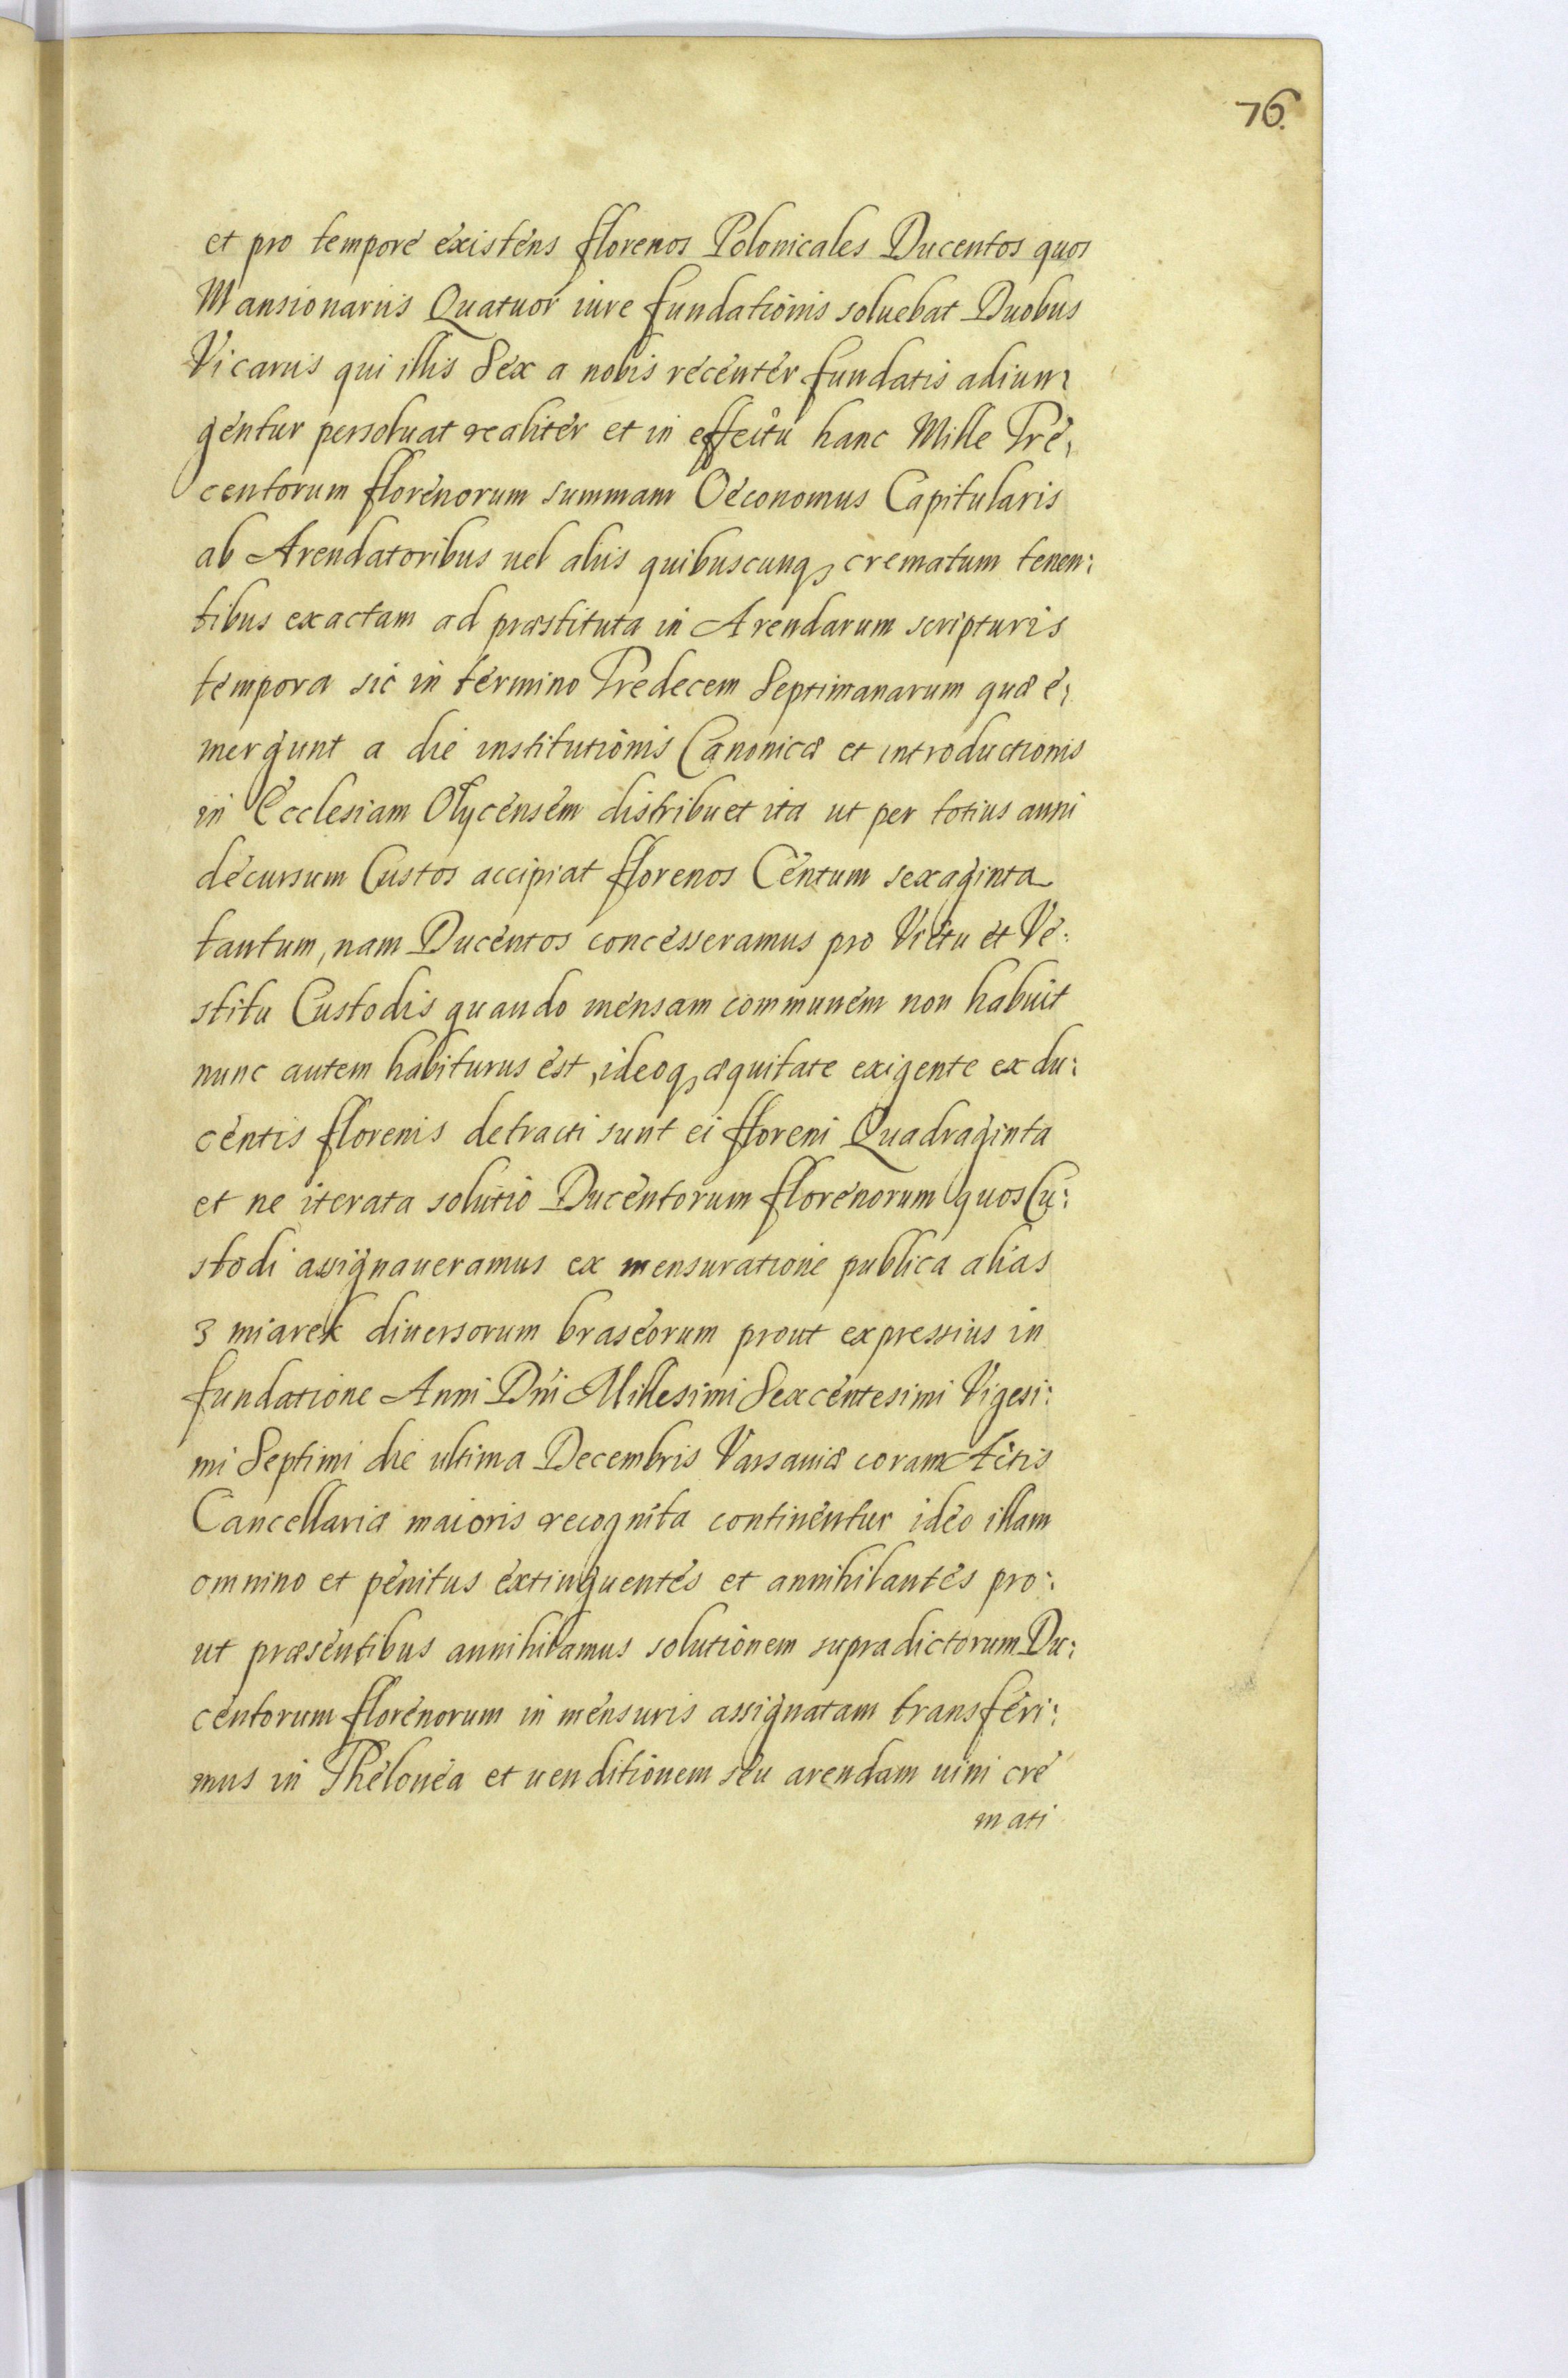 76.
et pro tempore existens florenos Polonicales Ducentos quos
Mansionariis Quatuor iure fundationis soluebat Duobus
Vicariis qui illis Sex a nobis recenter fundatis adiun:
gentur persoluat realiter et in effectu hanc Mille Tre:
centorum florenorum summam Oeconomus Capitularis
ab Arendatoribus uel aliis quibuscunqꝫ crematum tenen:
tibus exactam ad præstituta in Arendarum scripturis
tempora sic in termino Tredecem Septimanarum quæ e:
mergunt a die institutionis Canonicæ et introductionis
in Ecclesiam Olycensem distribuet ita ut per totius anni
decursum Custos accipiat florenos Centum sexaginta
tantum, nam Ducentos concesseramus pro Victu et Ve:
stitu Custodis quando mensam communem non habuit
nunc autem habiturus est, ideoqꝫ æquitate exigente ex du:
centis florenis detracti sunt ei floreni Quadraginta
et ne iterata solutio Ducentorum florenorum quos Cu:
stodi assignaueramus ex mensuratione publica alias
z miarek diuersorum braseorum prout expressius in
fundatione Anni Dñi Millesimi Sexcentesimi Vigesi:
mi Septimi die ultima Decembris Varsauiæ coram Actis
Cancellariæ maioris recognita continentur ideo illam
omnino et penitus extinguentes et annihilantes pro:
ut præsentibus annihilamus solutionem supradictorum Du:
centorum florenorum in mensuris assignatam transferi:
mus in Thelonea et uenditionem seu arendam uini cre
mati